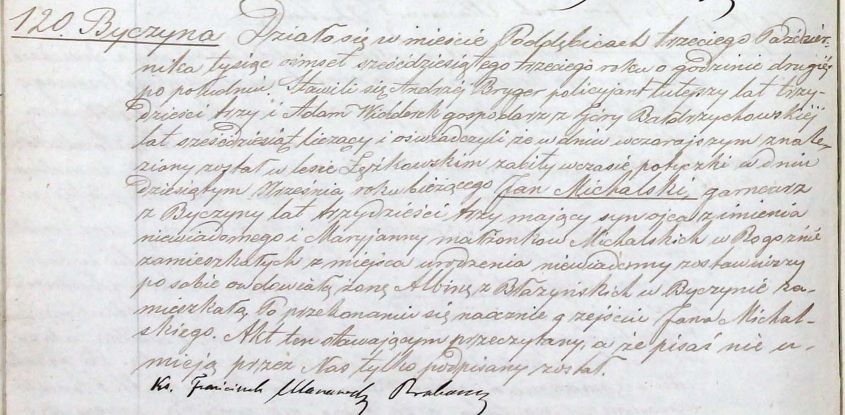 120. Byczyna Działo się w mieście Poddębicach trzeciego Paździer-
nika tysiąc ośmset sześćdziesiątego trzeciego roku o godzinie drugiéj
po południu. Stawili się Andrzéj Bryger policyjant tutejszy lat trzy-
dzieści trzy i Adam Widderek gospodarz z Góry Bałdrzychowskiéj
lat sześćdziesiąt liczący i oświadczyli że w dniu wczorajszym znale-
ziony został w lesie zabity w czasie potyczki w dniu
dziesiątym Września roku bieżącego Jan Michalski, garncarz
z Byczyny lat trzydzieści trzy mający syn ojca z imienia
niewiadomego i Maryjanny małżonków Michalskich w Rogoźnie
zamieszkałych z miejsca urodzenia niewiadomy zostawiwszy
po sobie owdowiałą żonę Albinę z Błażyńskich w Byczynie za-
mieszkałą. Po przekonaniu się naocznie o zejściu Jana Michal-
skiego. Akt ten stawającym przeczytany, a że pisać nie u-
mieją przez Nas tylko podpisany został.
Ks. Franciszek